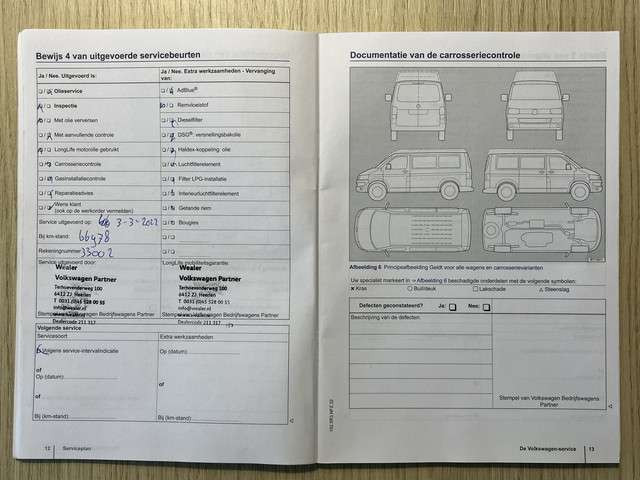 Bewijs 4 van uitgevoerde servicebeurten
Ja / Nee. Uitgevoerd is:
Ja / Nee. Extra werkzaamheden - Vervanging van:
Olieservice
AdBlue®
Inspectie
Remvloeistof
Met olie verversen
Dieselfilter
Met aanvullende controle
DSG®: versnellingsbakolie
LongLife motorolie gebruikt
Haldex-koppeling: olie
Carrosseriecontrole
Luchtfilterelement
Gasinstallatiecontrole
Filter LPG-installatie
Reparatieadvies
Interieurluchtfilterelement
Wens klant
(ook op de werkorder vermelden)
Getande riem
Service uitgevoerd op: 3-3-2022
Bougies
Bij km-stand: 66478
Rekeningnummer: 33002
Service uitgevoerd door:
LongLife mobiliteitsgarantie:
Wealer
Volkswagen Partner
Terhoevenderweg 100
6412 ZJ Heerlen
T 0031 (0)45 528 00 55
info@wealer.nl
www.wealer.nl
Dealercode 211 317
Stempel van Volkswagen Bedrijfswagens Partner
Wealer
Volkswagen Partner
Terhoevenderweg 100
6412 ZJ Heerlen
T 0031 (0)45 528 00 55
info@wealer.nl
www.wealer.nl
Dealercode 211 317
Stempel van Volkswagen Bedrijfswagens Partner
Volgende service
Servicesoort
Extra werkzaamheden
Volgens service-intervalindicatie
Op (datum):
of
Op (datum):
of
of
Bij (km-stand):
Bij (km-stand):
12
Serviceplan
Documentatie van de carrosseriecontrole
Afbeelding 6 Principeafbeelding Geldt voor alle wagens en carrosserievarianten
Uw specialist markeert in ⇒ Afbeelding 6 beschadigde onderdelen met de volgende symbolen:
× Kras
○ Buil/deuk
□ Lakschade
△ Steenslag
Defecten geconstateerd?
Ja:
Nee:
Beschrijving van de defecten:
Stempel van Volkswagen Bedrijfswagens
Partner
De Volkswagen-service
13